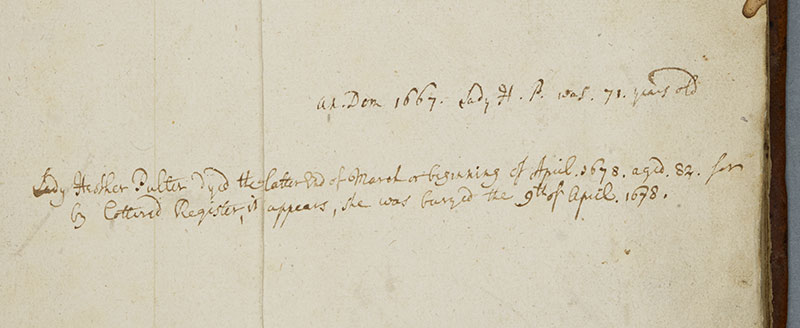 an. Dom 1667. Lady H. P. was. 71. years old
Lady Heſther Pulter dyed the latter End of March or beginning of April. 1678. aged. 82. for
by Cottered Register, it appears, she was buryed the 9th of April. 1678.